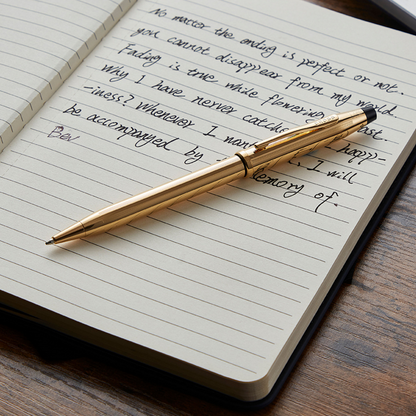 No matter the ending is perfect or not.
you cannot disappear from my world.
Finding is true while flowering
Why I have nerver catch happ-
-iness? Whenever I I will
be accompanyed by memory of.
Bev